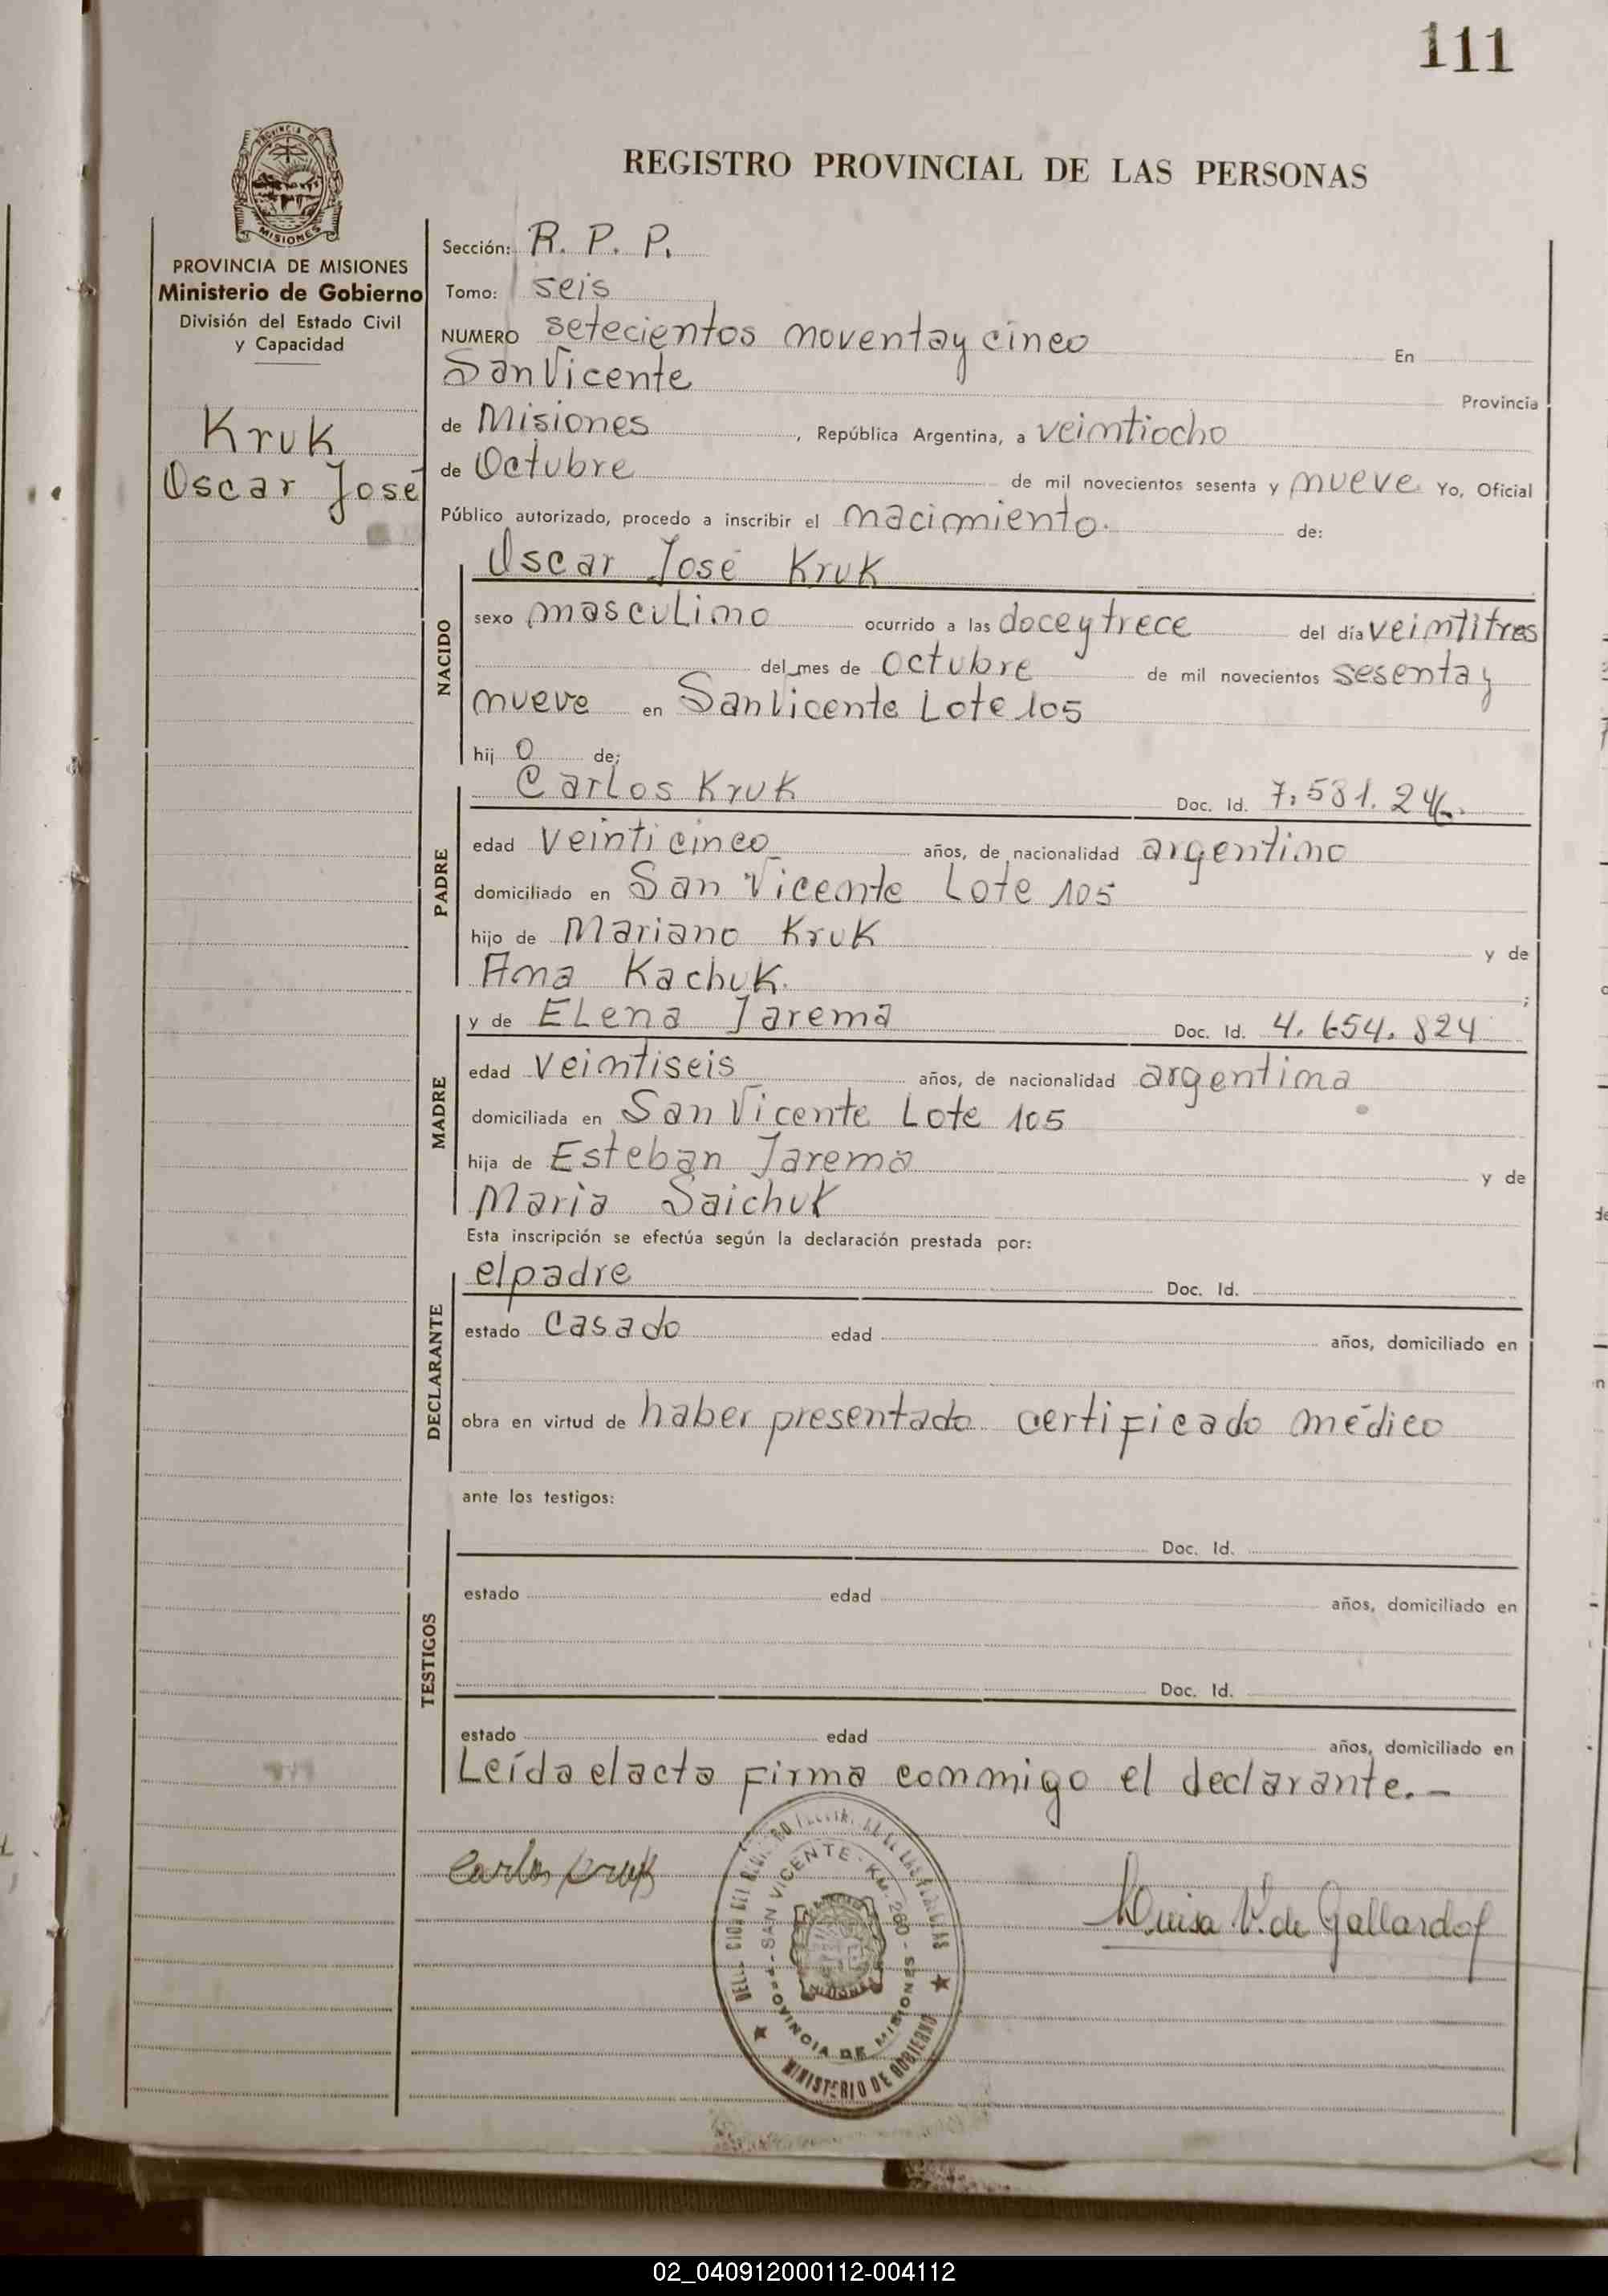 111
PROVINCIA DE MISIONES
Ministerio de Gobierno
División del Estado Civil
y Capacidad
Kruk
Oscar José
REGISTRO PROVINCIAL DE LAS PERSONAS
Sección: R. P. P.
Tomo: seis
NUMERO setecientos noventay cinco En
San Vicente Provincia
de Misiones, República Argentina, a veintiocho
de Octubre de mil novecientos sesenta y nueve Yo, Oficial
Público autorizado, procedo a inscribir el nacimiento. de:
NACIDO
Oscar José Kruk
sexo masculino ocurrido a las doce y trece del día veintitres
del mes de octubre de mil novecientos sesenta y
nueve en San Vicente Lote 105
hij o de;
PADRE
Carlos Kruk Doc. Id.
edad veinticinco años, de nacionalidad argentino
domiciliado en San Vicente Lote 105
hijo de Mariano Kruk y de
Ana Kachuk. ;
MADRE
y de Elena Jarema Doc. Id. 4.654.824
edad veintiseis años, de nacionalidad argentina
domiciliada en San Vicente Lote 105
hija de Esteban Jarema y de
Maria Saichuk
Esta inscripción se efectúa según la declaración prestada por:
DECLARANTE
el padre Doc. Id.
estado casado edad años, domiciliado en
obra en virtud de haber presentado certificado médico
ante los testigos:
TESTIGOS
Doc. Id.
estado edad años, domiciliado en
Doc. Id.
estado edad años, domiciliado en
Leída el acta firma conmigo el declarante.-
Carlos Kruk
Luisa V. de Gallardo
SAN VICENTE - KM. 260 - PROVINCIA DE MISIONES
MINISTERIO DE GOBIERNO
02_040912000112-004112